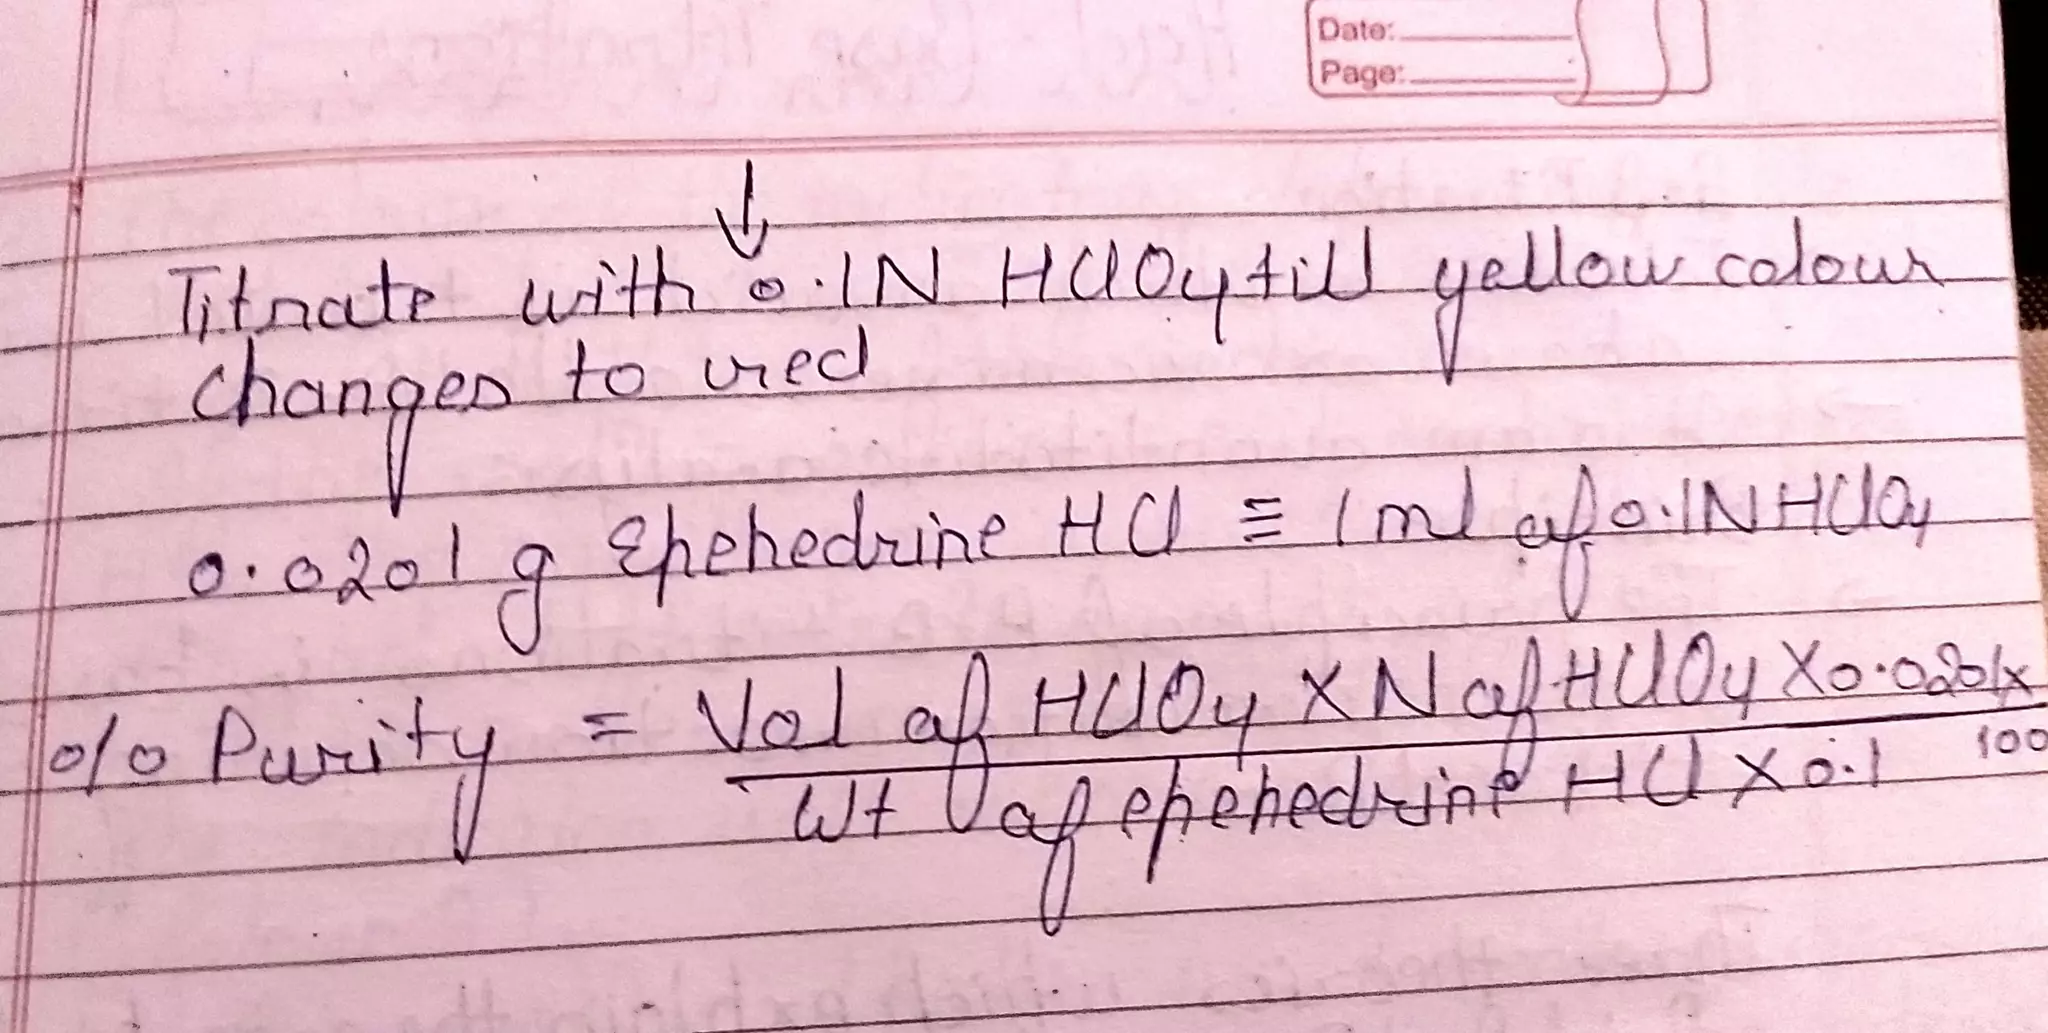 Date:
Page:
↓
Titrate with 0.1N HClO4 till yellow colour
changes to red
0.0201 g Ephehedrine HCl ≡ 1ml of 0.1N HClO4
% Purity = Vol of HClO4 X N of HClO4 X 0.0201 x 100
Wt of ephehedrine HCl X 0.1